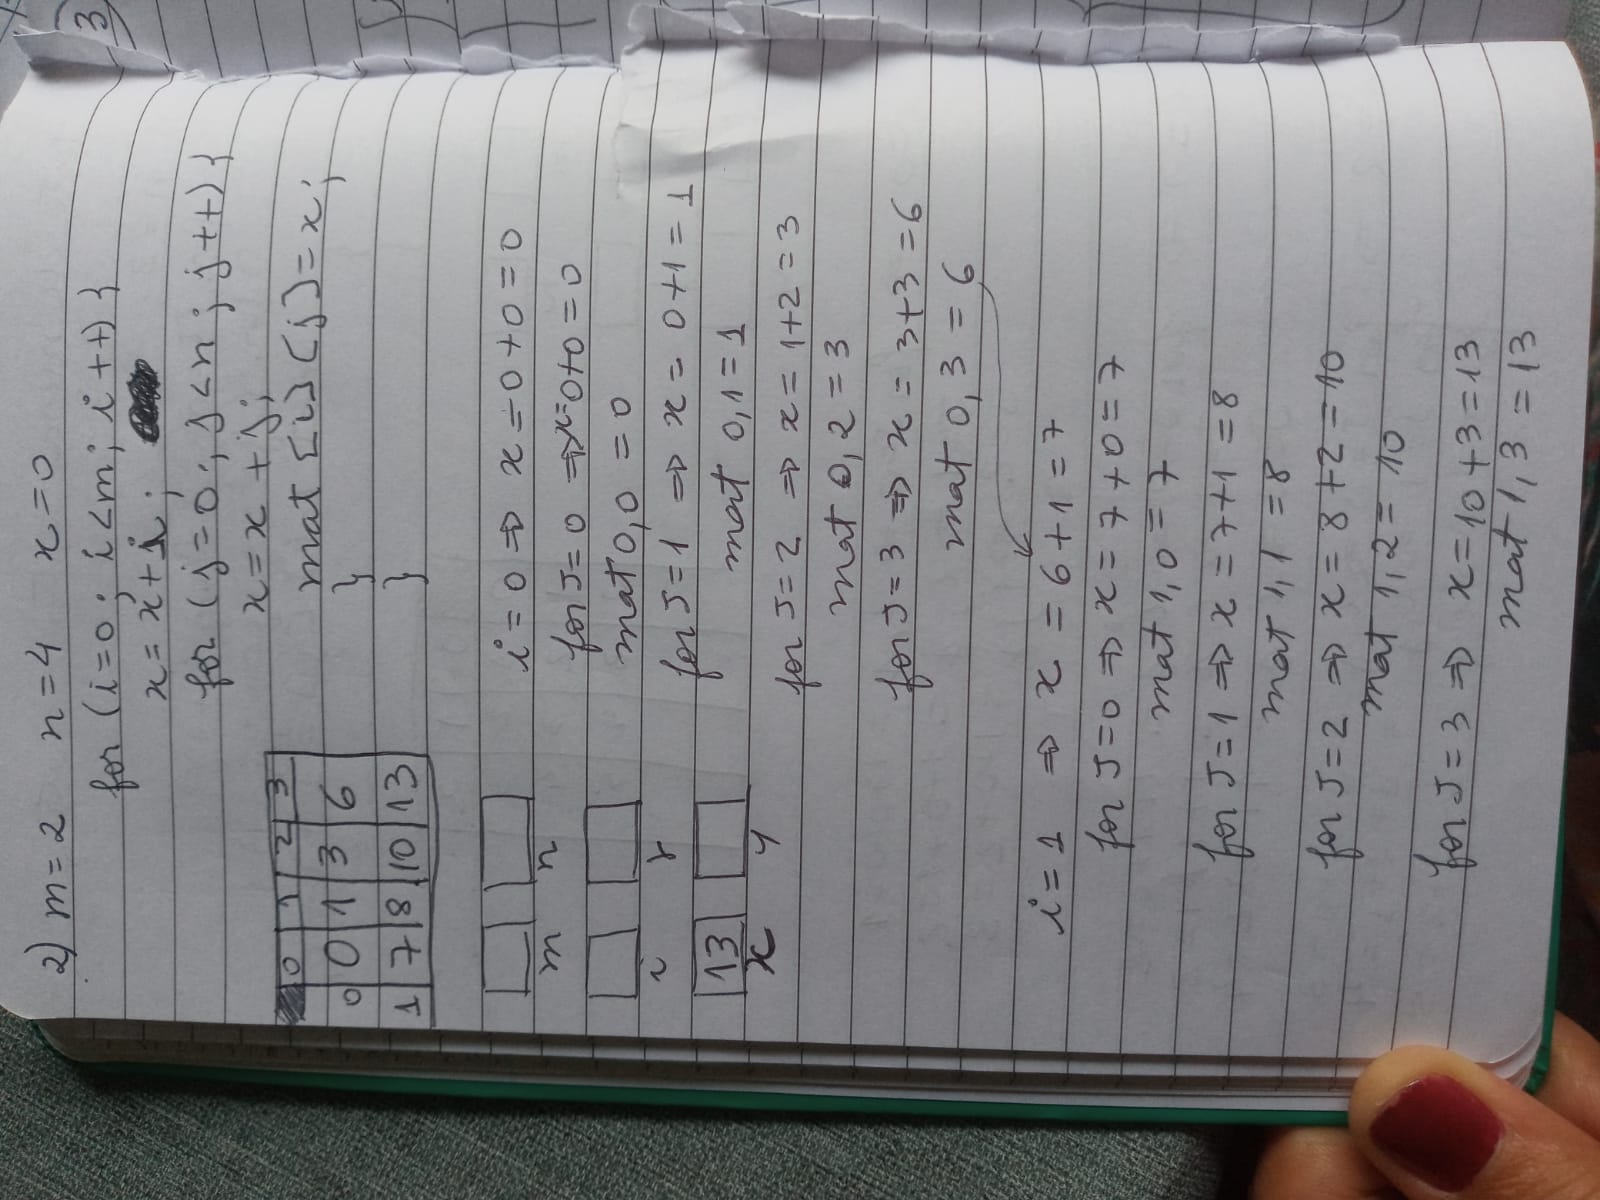 3)
2) m=2 n=4 x=0
for (i=0; i<m; i++) {
x=x+i;
for (j=0; j<n; j++) {
x=x+j;
mat[i][j]=x;
}
}
0 1 2 3
0 0 1 3 6
1 7 8 10 13
m n
i
13
x y
i=0 ⇒ x=0+0=0
for J=0 ⇒ x=0+0=0
mat 0,0 = 0
for J=1 ⇒ x=0+1=1
mat 0,1=1
for J=2 ⇒ x=1+2=3
mat 0,2=3
for J=3 ⇒ x=3+3=6
mat 0,3=6
i=1 ⇒ x=6+1=7
for J=0 ⇒ x=7+0=7
mat 1,0=7
for J=1 ⇒ x=7+1=8
mat 1,1=8
for J=2 ⇒ x=8+2=10
mat 1,2=10
for J=3 ⇒ x=10+3=13
mat 1,3=13